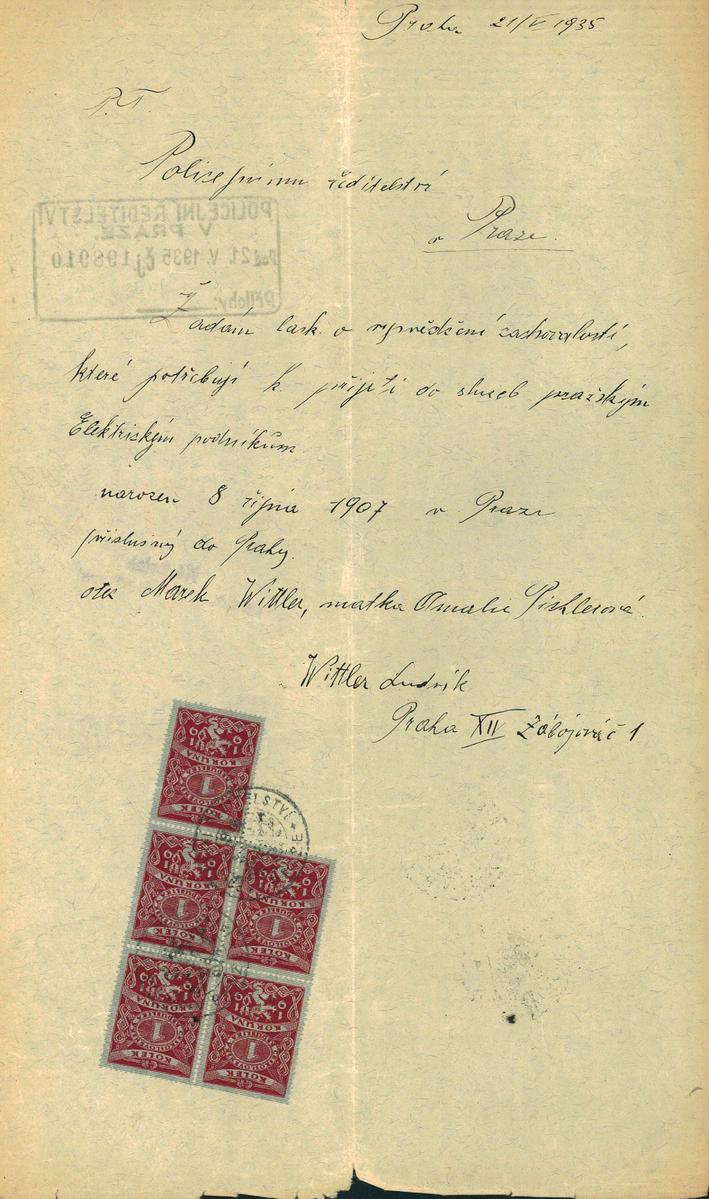 Praha 21/V 1935
P.T.
Policejnímu ředitelství
v Praze.
POLICEJNÍ ŘEDITELSTVÍ
V PRAZE.
21. V. 1935 čj 198910
Přílohy:
Žádám lask. o vysvědčení zachovalosti,
které potřebuji k přijetí do služeb pražským
Elektrickým podnikům
narozen 8 října 1907 v Praze
příslušný do Prahy.
otec Marek Wittler, matka Amalie Picklerová.
Wittler Ludvík
Praha XII Zábojova č 1
KOLEK
1
KORUNA
1919
KOLEK
1
KORUNA
1919
KOLEK
1
KORUNA
1919
KOLEK
1
KORUNA
1919
KOLEK
1
KORUNA
1919